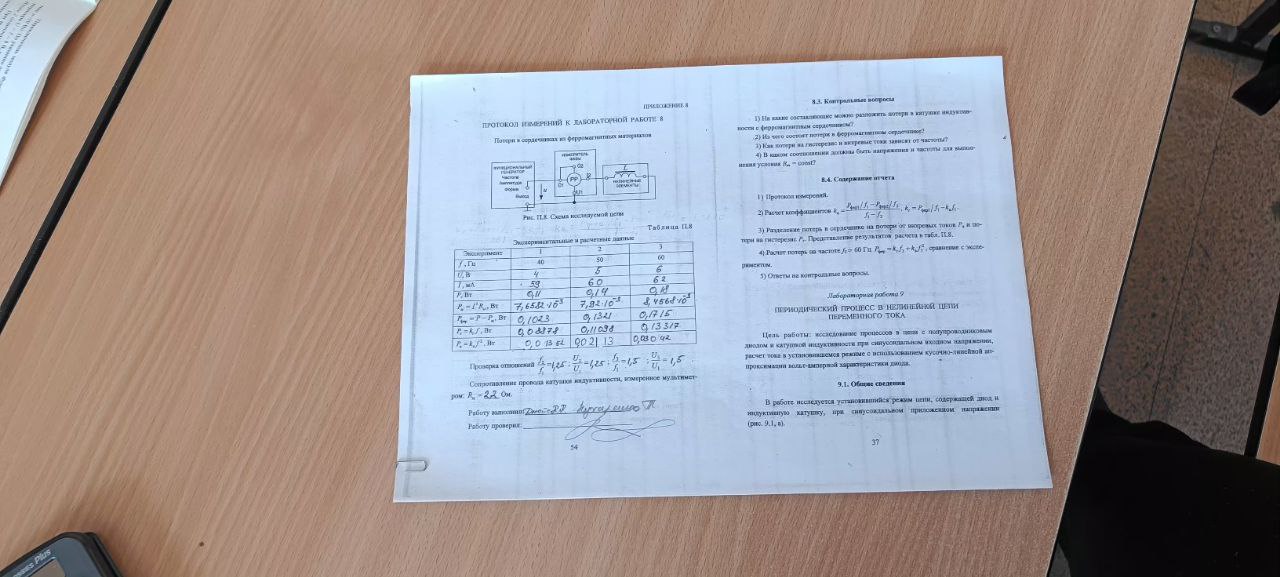 ПРИЛОЖЕНИЕ 8
ПРОТОКОЛ ИЗМЕРЕНИЙ К ЛАБОРАТОРНОЙ РАБОТЕ 8
Потери в сердечниках из ферромагнитных материалов
ФУНКЦИОНАЛЬНЫЙ
ГЕНЕРАТОР
Частота
Амплитуда
Форма
Выход
ИЗМЕРИТЕЛЬ
ФАЗЫ
PP
НЕЛИНЕЙНЫЕ
ЭЛЕМЕНТЫ
Рис. П.8. Схема исследуемой цепи
Таблица П.8
Экспериментальные и расчетные данные
Эксперимент 1 2 3
f, Гц 40 50 60
U, В 4 5 6
I, мА 59 60 62
P, Вт 0,11 0,14 0,18
Pп = I²Rп, Вт 7,6582·10⁻³ 7,92·10⁻³ 8,4568·10⁻³
Pфер = P – Pп, Вт 0,1023 0,1321 0,1715
Pг = kг f, Вт 0,08878 0,11098 0,13317
Pв = kв f², Вт 0,01352 0,02113 0,03042
Проверка отношений f₂/f₁ = 1,25; U₂/U₁ = 1,25; f₃/f₁ = 1,5; U₃/U₁ = 1,5
Сопротивление провода катушки индуктивности, измеренное мультимет-
ром: Rп = 2,2 Ом.
Работу выполнил:
Работу проверил:
54
8.3. Контрольные вопросы
1) На какие составляющие можно разложить потери в катушке индуктив-
ности с ферромагнитным сердечником?
2) Из чего состоят потери в ферромагнитном сердечнике?
3) Как потери на гистерезис и вихревые токи зависят от частоты?
4) В каком соотношении должны быть напряжения и частоты для выпол-
нения условия Bm = const?
8.4. Содержание отчета
1) Протокол измерений.
2) Расчет коэффициентов kв = (Pфер1/f₁ – Pфер2/f₂)/(f₁ – f₂), kг = Pфер1/f₁ – kв f₁.
3) Разделение потерь в сердечнике на потери от вихревых токов Pв и по-
тери на гистерезис Pг. Представление результатов расчета в табл. П.8.
4) Расчет потерь на частоте f₃ = 60 Гц Pфер = kг f₃ + kв f₃², сравнение с экспе-
риментом.
5) Ответы на контрольные вопросы.
Лабораторная работа 9
ПЕРИОДИЧЕСКИЙ ПРОЦЕСС В НЕЛИНЕЙНОЙ ЦЕПИ
ПЕРЕМЕННОГО ТОКА
Цель работы: исследование процессов в цепи с полупроводниковым
диодом и катушкой индуктивности при синусоидальном входном напряжении,
расчет тока в установившемся режиме с использованием кусочно-линейной ап-
проксимации вольт-амперной характеристики диода.
9.1. Общие сведения
В работе исследуется установившийся режим цепи, содержащей диод и
индуктивную катушку, при синусоидальном приложенном напряжении
(рис. 9.1, а).
37